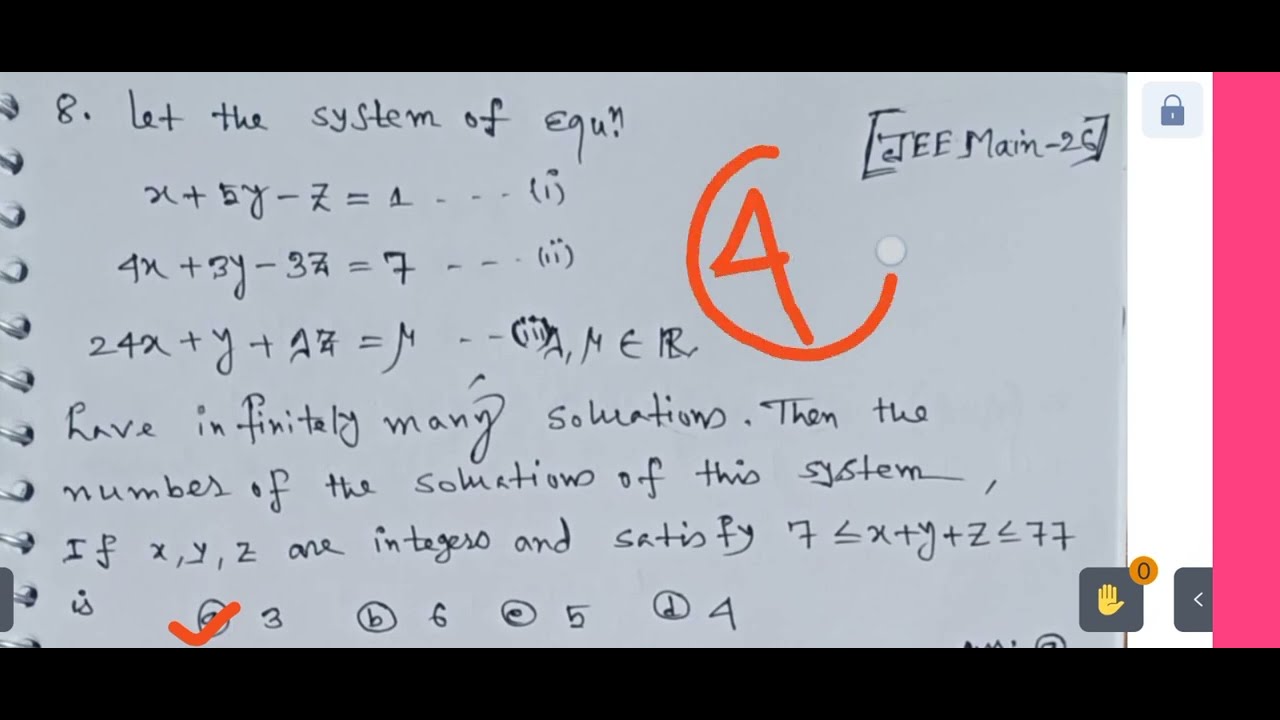 8. Let the system of Equⁿ.
[JEE Main-26]
x + 5y - z = 1 - - - - (i)
4
4x + 3y - 3z = 7 - - - - (ii)
24x + y + λz = μ - - (iii) λ, μ ∈ ℝ
have infinitely many soluations. Then the
number of the soluations of this system,
If x, y, z are integers and satisfy 7 ≤ x+y+z ≤ 77
0
is ⓐ 3 ⓑ 6 ⓒ 5 ⓓ 4